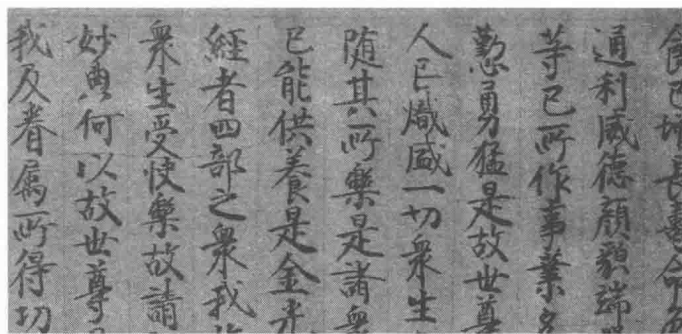 食已增長壽命色
通利威德顏貌端
等已所作事業多
懃勇猛是故世尊
人已熾盛一切衆生
随其所樂是諸衆
已能供養是金光
經者四部之衆我
衆生受快樂故請
妙典何以故世尊
我及眷屬所得功